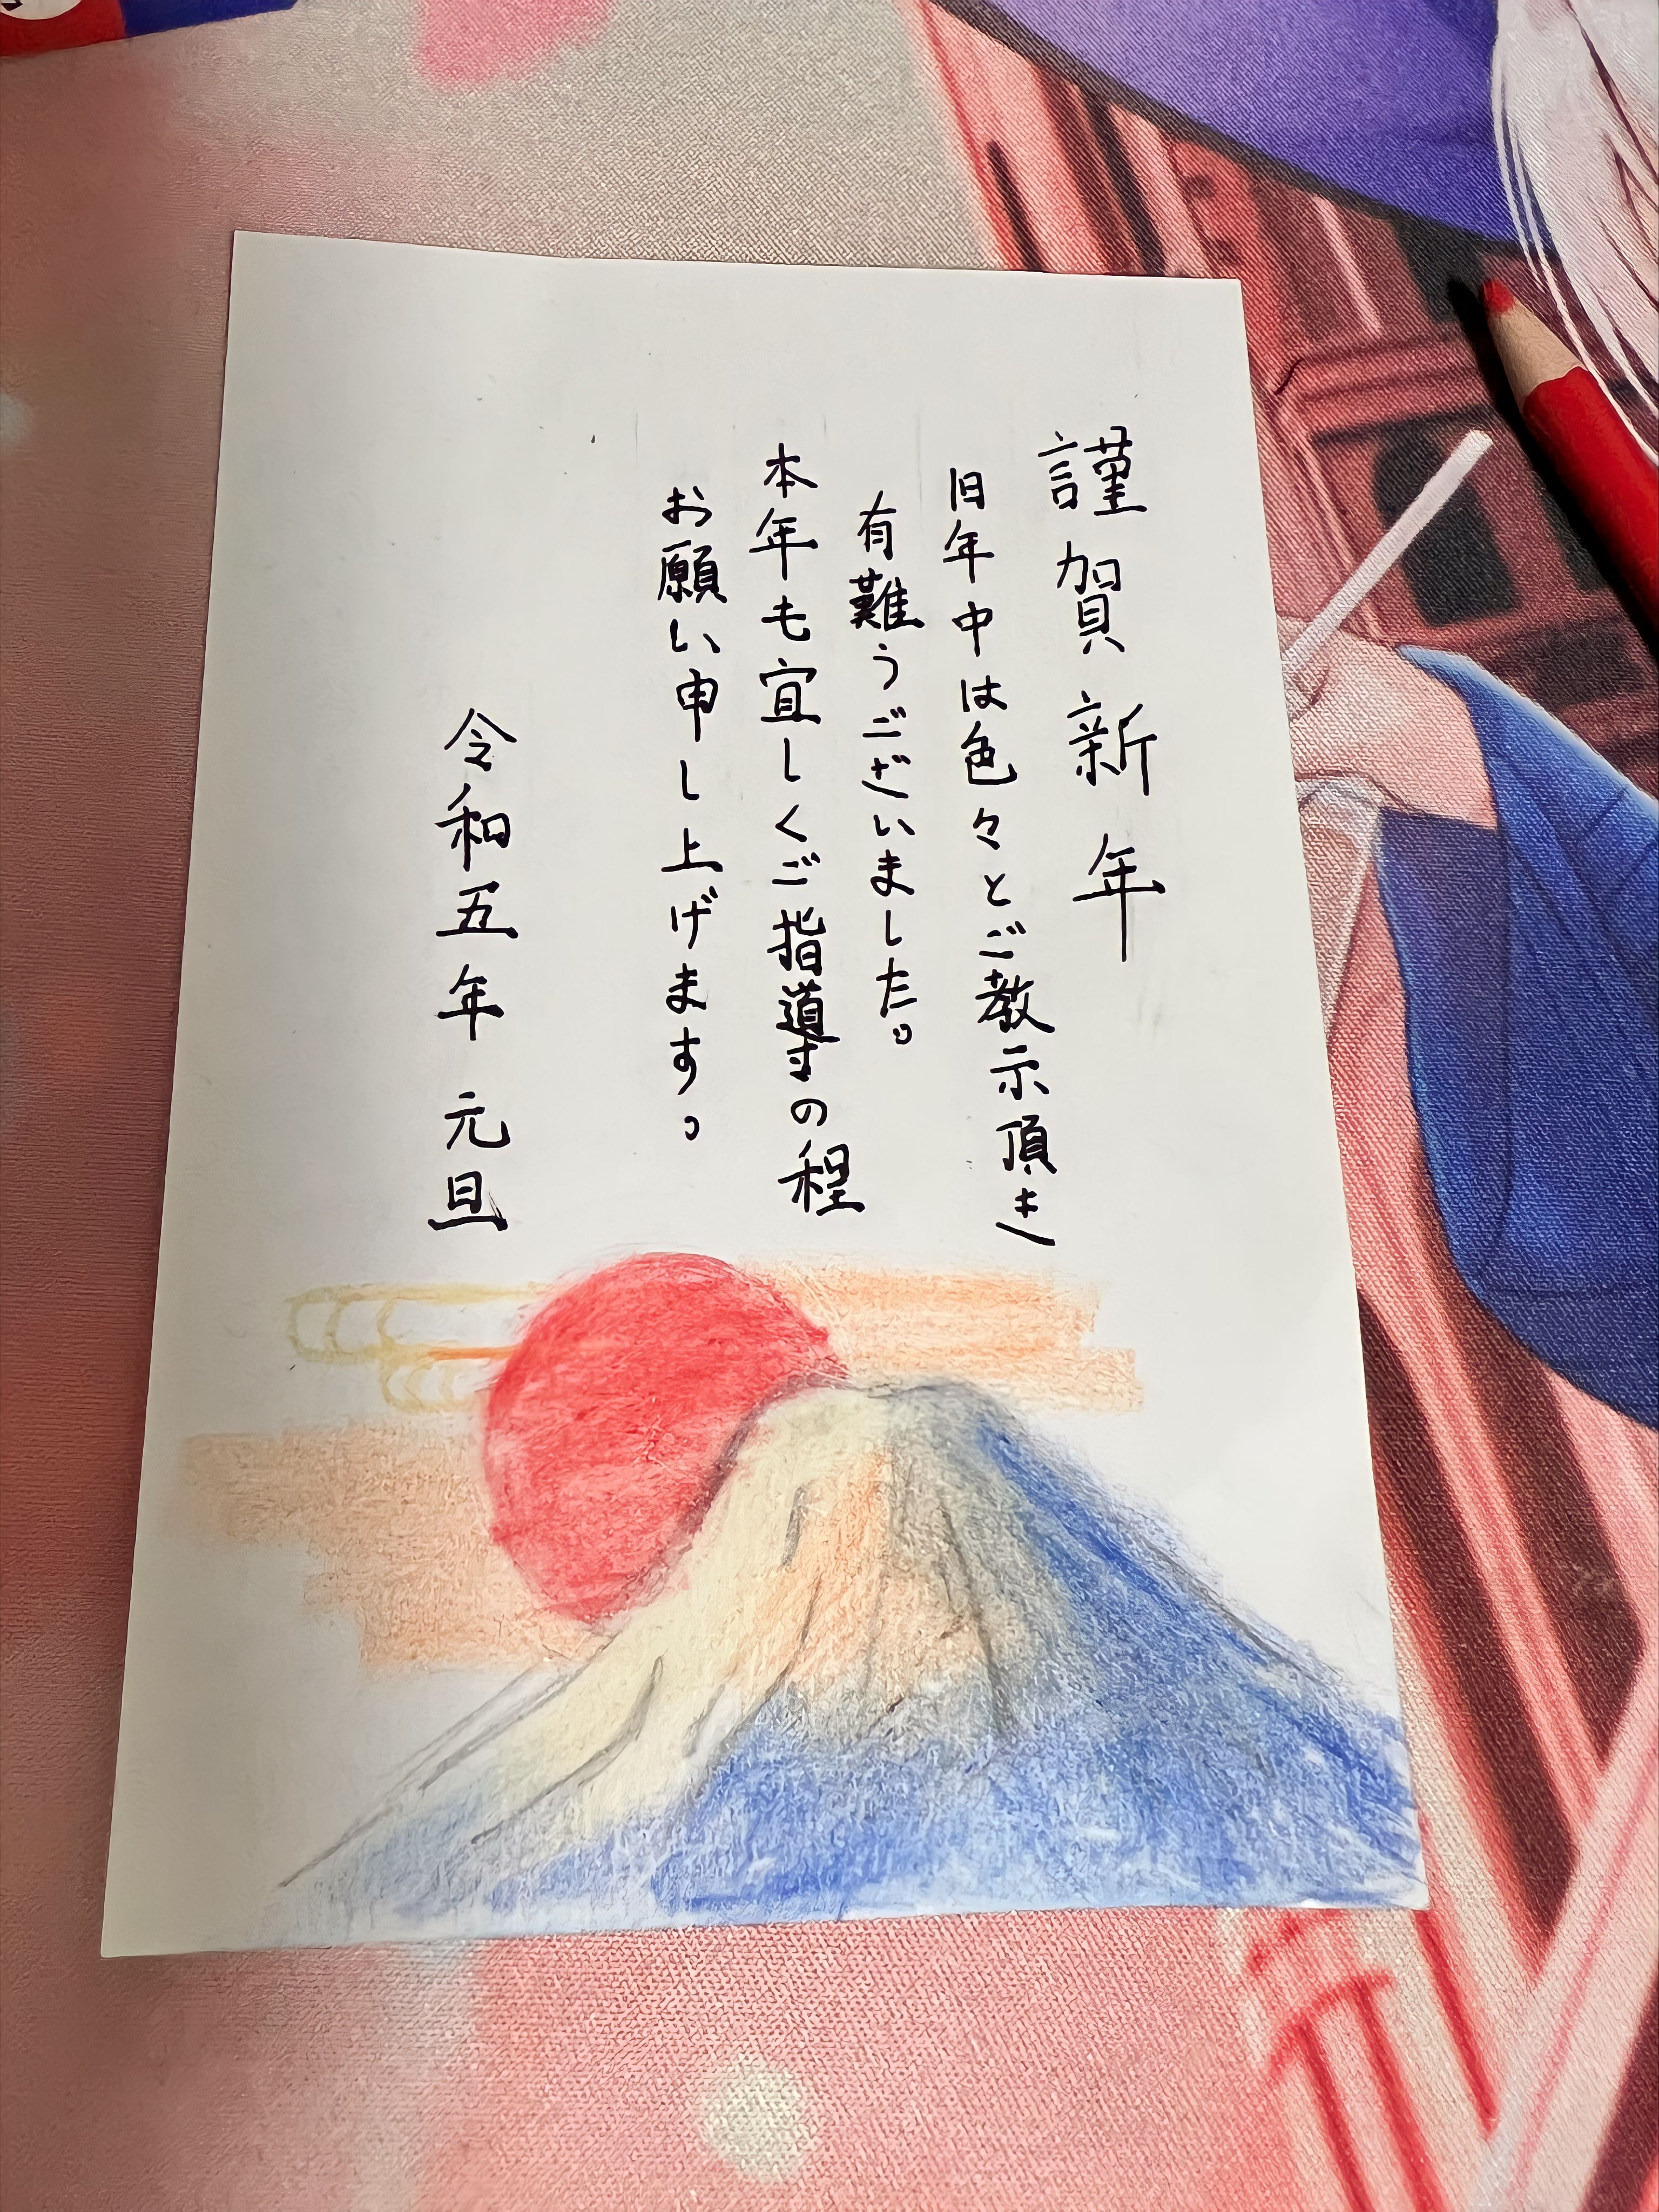 謹賀新年
旧年中は色々とご教示頂き
有難うございました。
本年も宜しくご指導の程
お願い申し上げます。
令和五年 元旦